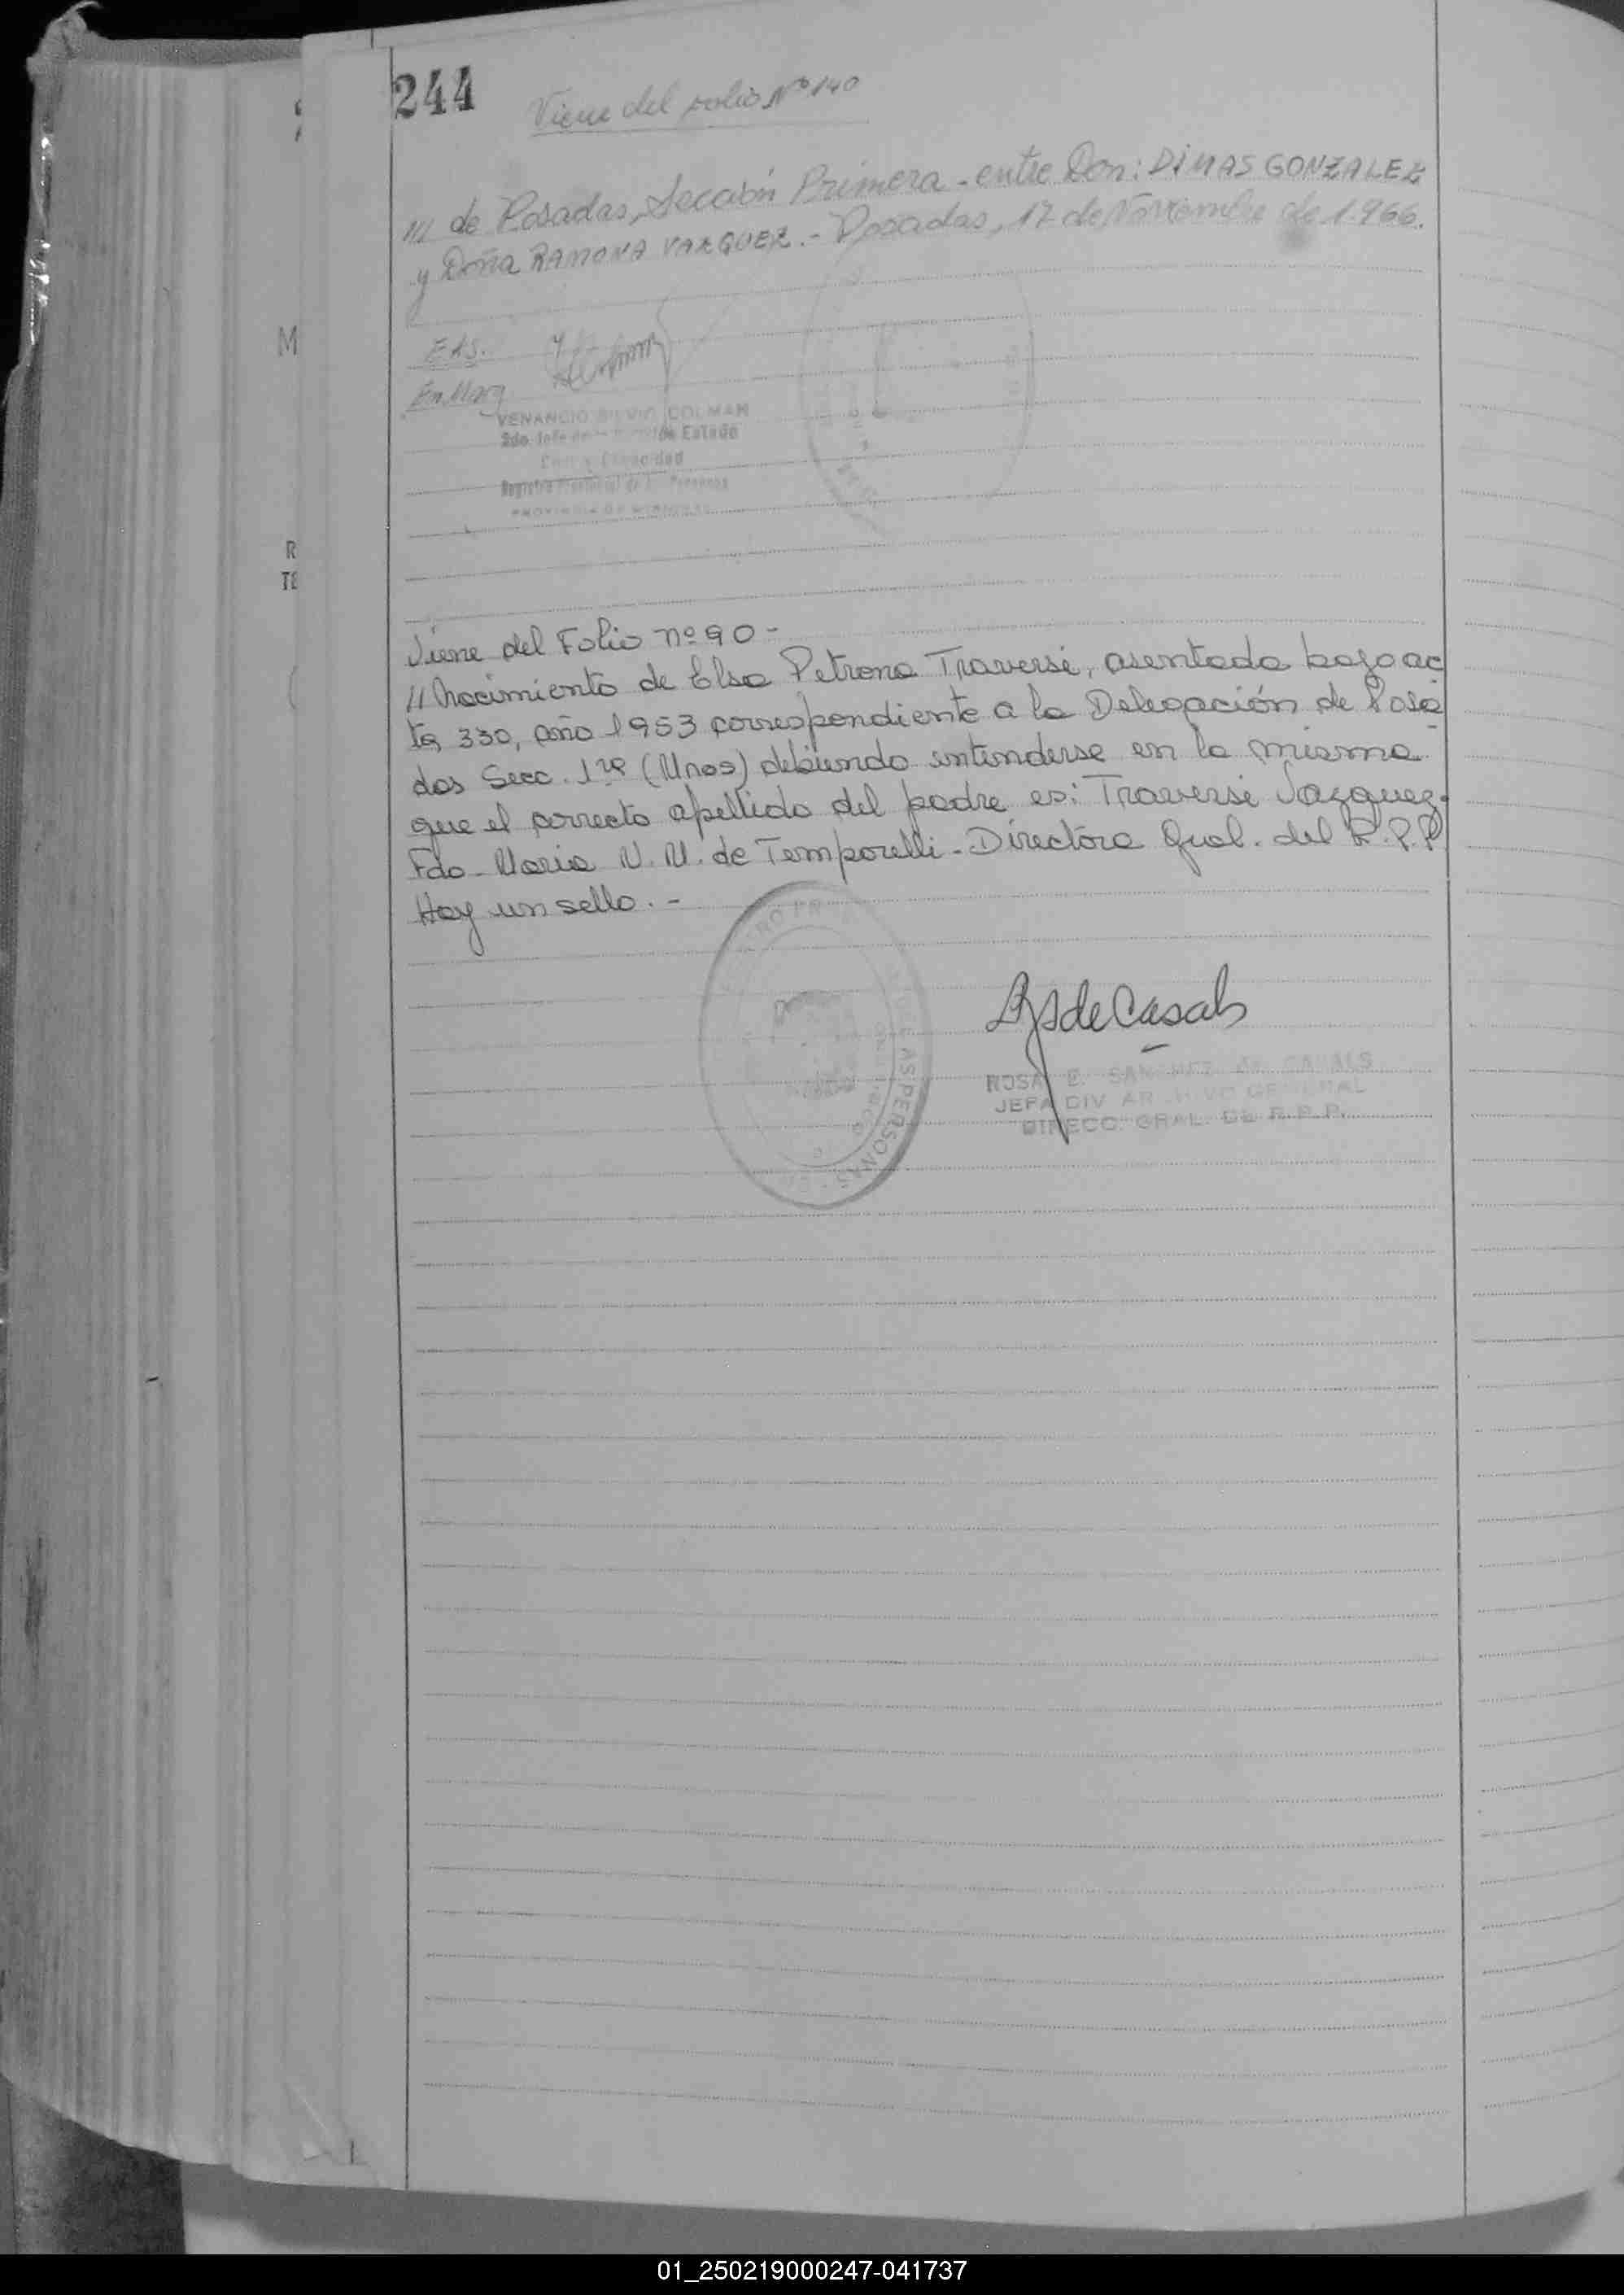 244
Viene del folio Nº 140
/// de Posadas, Sección Primera - entre Don: DIMAS GONZALEZ
y Doña RAMONA VAZQUEZ.- Posadas, 17 de Noviembre de 1.966.
EAS.
En Marg
VENANCIO SILVIO COLMAN
de Estado
Capacidad
Registro Provincial de Personas
PROVINCIA DE MISIONES
M
R
TE
Viene del Folio nº 90 -
// Nacimiento de Elsa Petrona Traversi, asentada bajo ac
ta 330, año 1953 correspondiente a la Delegación de Posa
das Secc. 1ra (Mnes) debiendo entenderse en la misma
que el correcto apellido del padre es: Traversi Vazquez.
Fdo. Maria N. M. de Temporelli - Directora Gral. del R.P.P.
Hay un sello. -
AS PERSONAS
RSdeCasals
ROSA E. SANCHEZ de CASALS
JEFA DIV ARCHIVO GENERAL
DIRECC. GRAL. DE R.P.P.
01_250219000247-041737